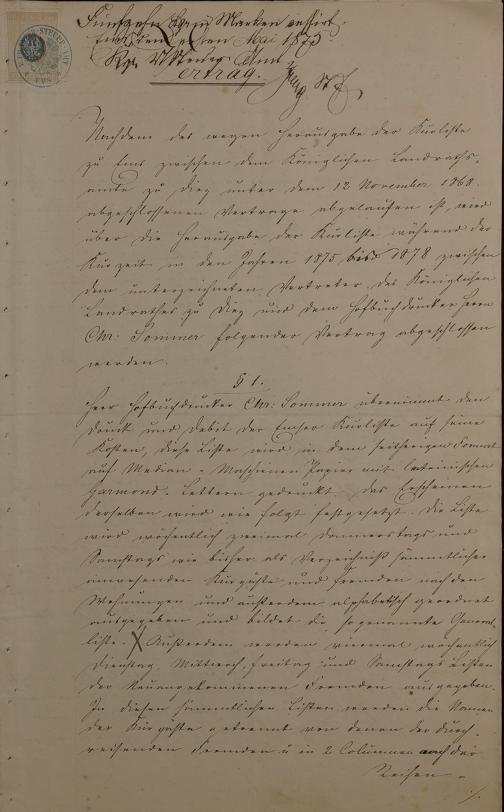 Fünfzehn Mark
Ems den ten Mai 1875.
Vertrag.
Nachdem der wegen Herausgabe der Kurliste
zu Ems zwischen dem Königlichen Landraths-
amte zu Diez unter dem 12 November 1868.
abgeschlossenen Vertrage abgelaufen ist, wird
über die Herausgabe der Kurliste während der
Kurzeit in den Jahren 1875 bis 1878 zwischen
dem unterzeichneten Vertreter des Königlichen
Landrathes zu Diez und dem Hofbuchdrucker Herrn
Chr: Sommer folgender Vertrag abgeschlossen
werden.
§ 1.
Herr Hofbuchdrucker Chr: Sommer übernimmt den
Druck und Debit der Emser Kurliste auf seine
Kosten, diese Liste wird in dem seitherigen Format
auf Median-Maschinen Papier mit lateinischen
Garmond-Lettern gedruckt. Das Erscheinen
derselben wird wie folgt festgesetzt. Die Liste
wird wöchentlich zweimal Donnerstags und
Samstags wie bisher als Verzeichniß sämmtlicher
anwesenden Kurgäste und Fremden nach den
Wohnungen und außerdem alphabetisch geordnet
ausgegeben und bildet die sogenannte General-
liste. Außerdem werden viermal wöchentlich
Dienstag, Mittwoch, Freitag und Samstags Listen
der Neuangekommenen Fremden ausgegeben.
In diesen sämmtlichen Listen werden die Namen
der Kurgäste getrennt von denen der durch-
reisenden Fremden u in 2 Columnen nach der
Reihen-